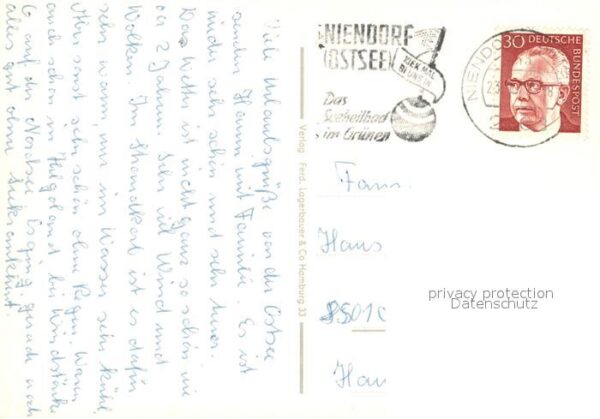 Viele Urlaubsgrüße von der Ostsee
sendet Hanni mit Familie. Es ist
wieder sehr schön und sehr teuer.
Das Wetter ist nicht ganz so schön wie
vor 2 Jahren. Sehr viel Wind und
Wolken. Im Strandkorb ist es dafür
sehr warm nur im Wasser sehr kühl.
Aber sonst sehr schön ohne Regen. Waren
auch schon in Helgoland bei Windstärke
6 auf der Nordsee. Es ging gerade noch
alles gut ohne Seekrankheit.
Verlag Ferd. Lagerbauer & Co Hamburg 33
NIENDORF
OSTSEE
Das
Seeheilbad
im Grünen
NIENDO
30 DEUTSCHE
BUNDESPOST
Fam.
Hans
8501
Han
privacy protection
Datenschutz